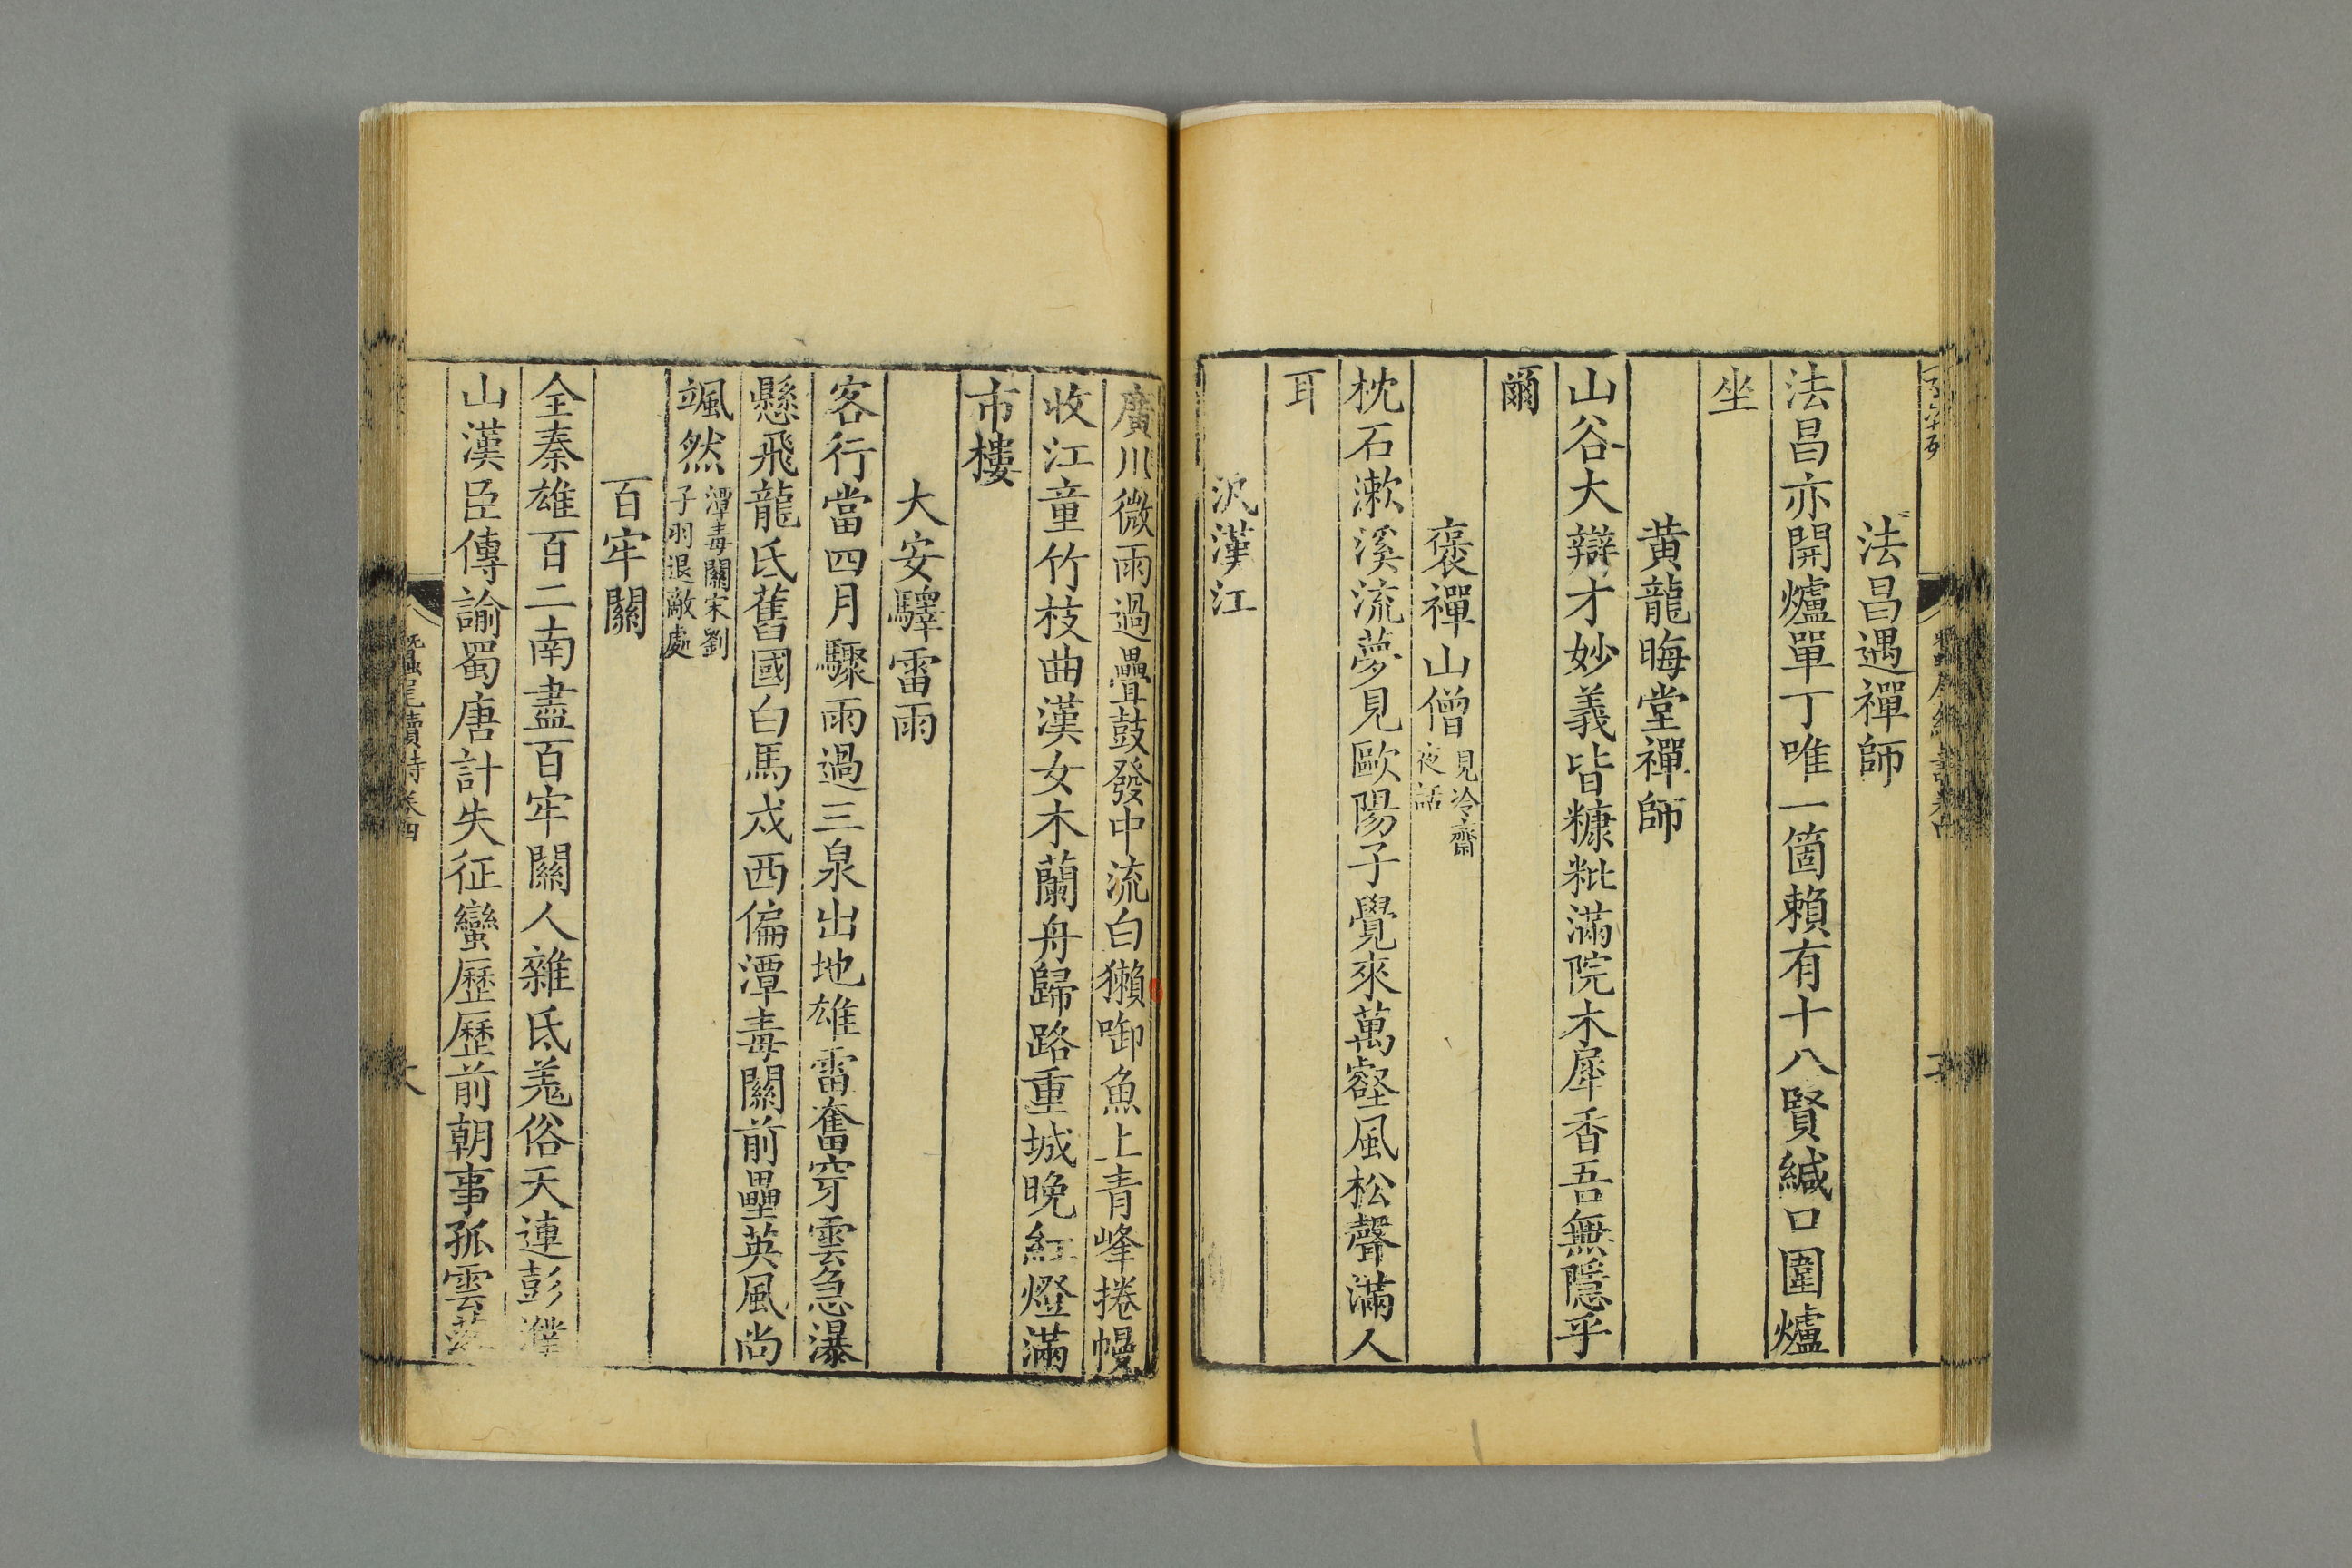 法昌遇禪師
法昌亦開爐單丁唯一箇賴有十八賢緘口圍爐
坐
黃龍晦堂禪師
山谷大辯才妙義皆糠粃滿院木犀香吾無隱乎
爾
褒禪山僧見冷齋
夜話
枕石漱溪流夢見歐陽子覺來萬壑風松聲滿人
耳
汎漢江
廣川微雨過疊鼓發中流白獺啣魚上青峰捲幔
收江童竹枝曲漢女木蘭舟歸路重城晚紅燈滿
市樓
大安驛雷雨
客行當四月驟雨過三泉出地雄雷奮穿雲急瀑
懸飛龍氐舊國白馬戍西偏潭毒關前壘英風尚
颯然潭毒關宋劉
子羽退敵處
百牢關
全秦雄百二南盡百牢關人雜氐羌俗天連彭濮
山漢臣傳諭蜀唐計失征蠻歷歷前朝事孤雲
蠶尾續詩卷四